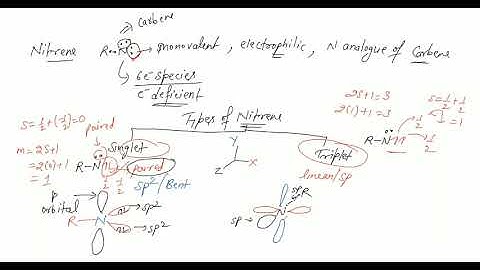 ⇒ Carbene
Nitrene R-N → monovalent, electrophilic, N analogue of Carbene
↳ 6e⁻ species
e⁻ deficient
Types of Nitrene
S=½+(-½)=0
m=2S+1
=2(0)+1
=1
paired
Singlet
R-N
½ ½
Paired
sp²/Bent
Y
X
Z
2S+1=3
2(1)+1=3
S=½+½
=1
R-N
½
½
Triplet
linear/sp
p
orbital
R-N
sp²
sp²
sp
N
R
sp